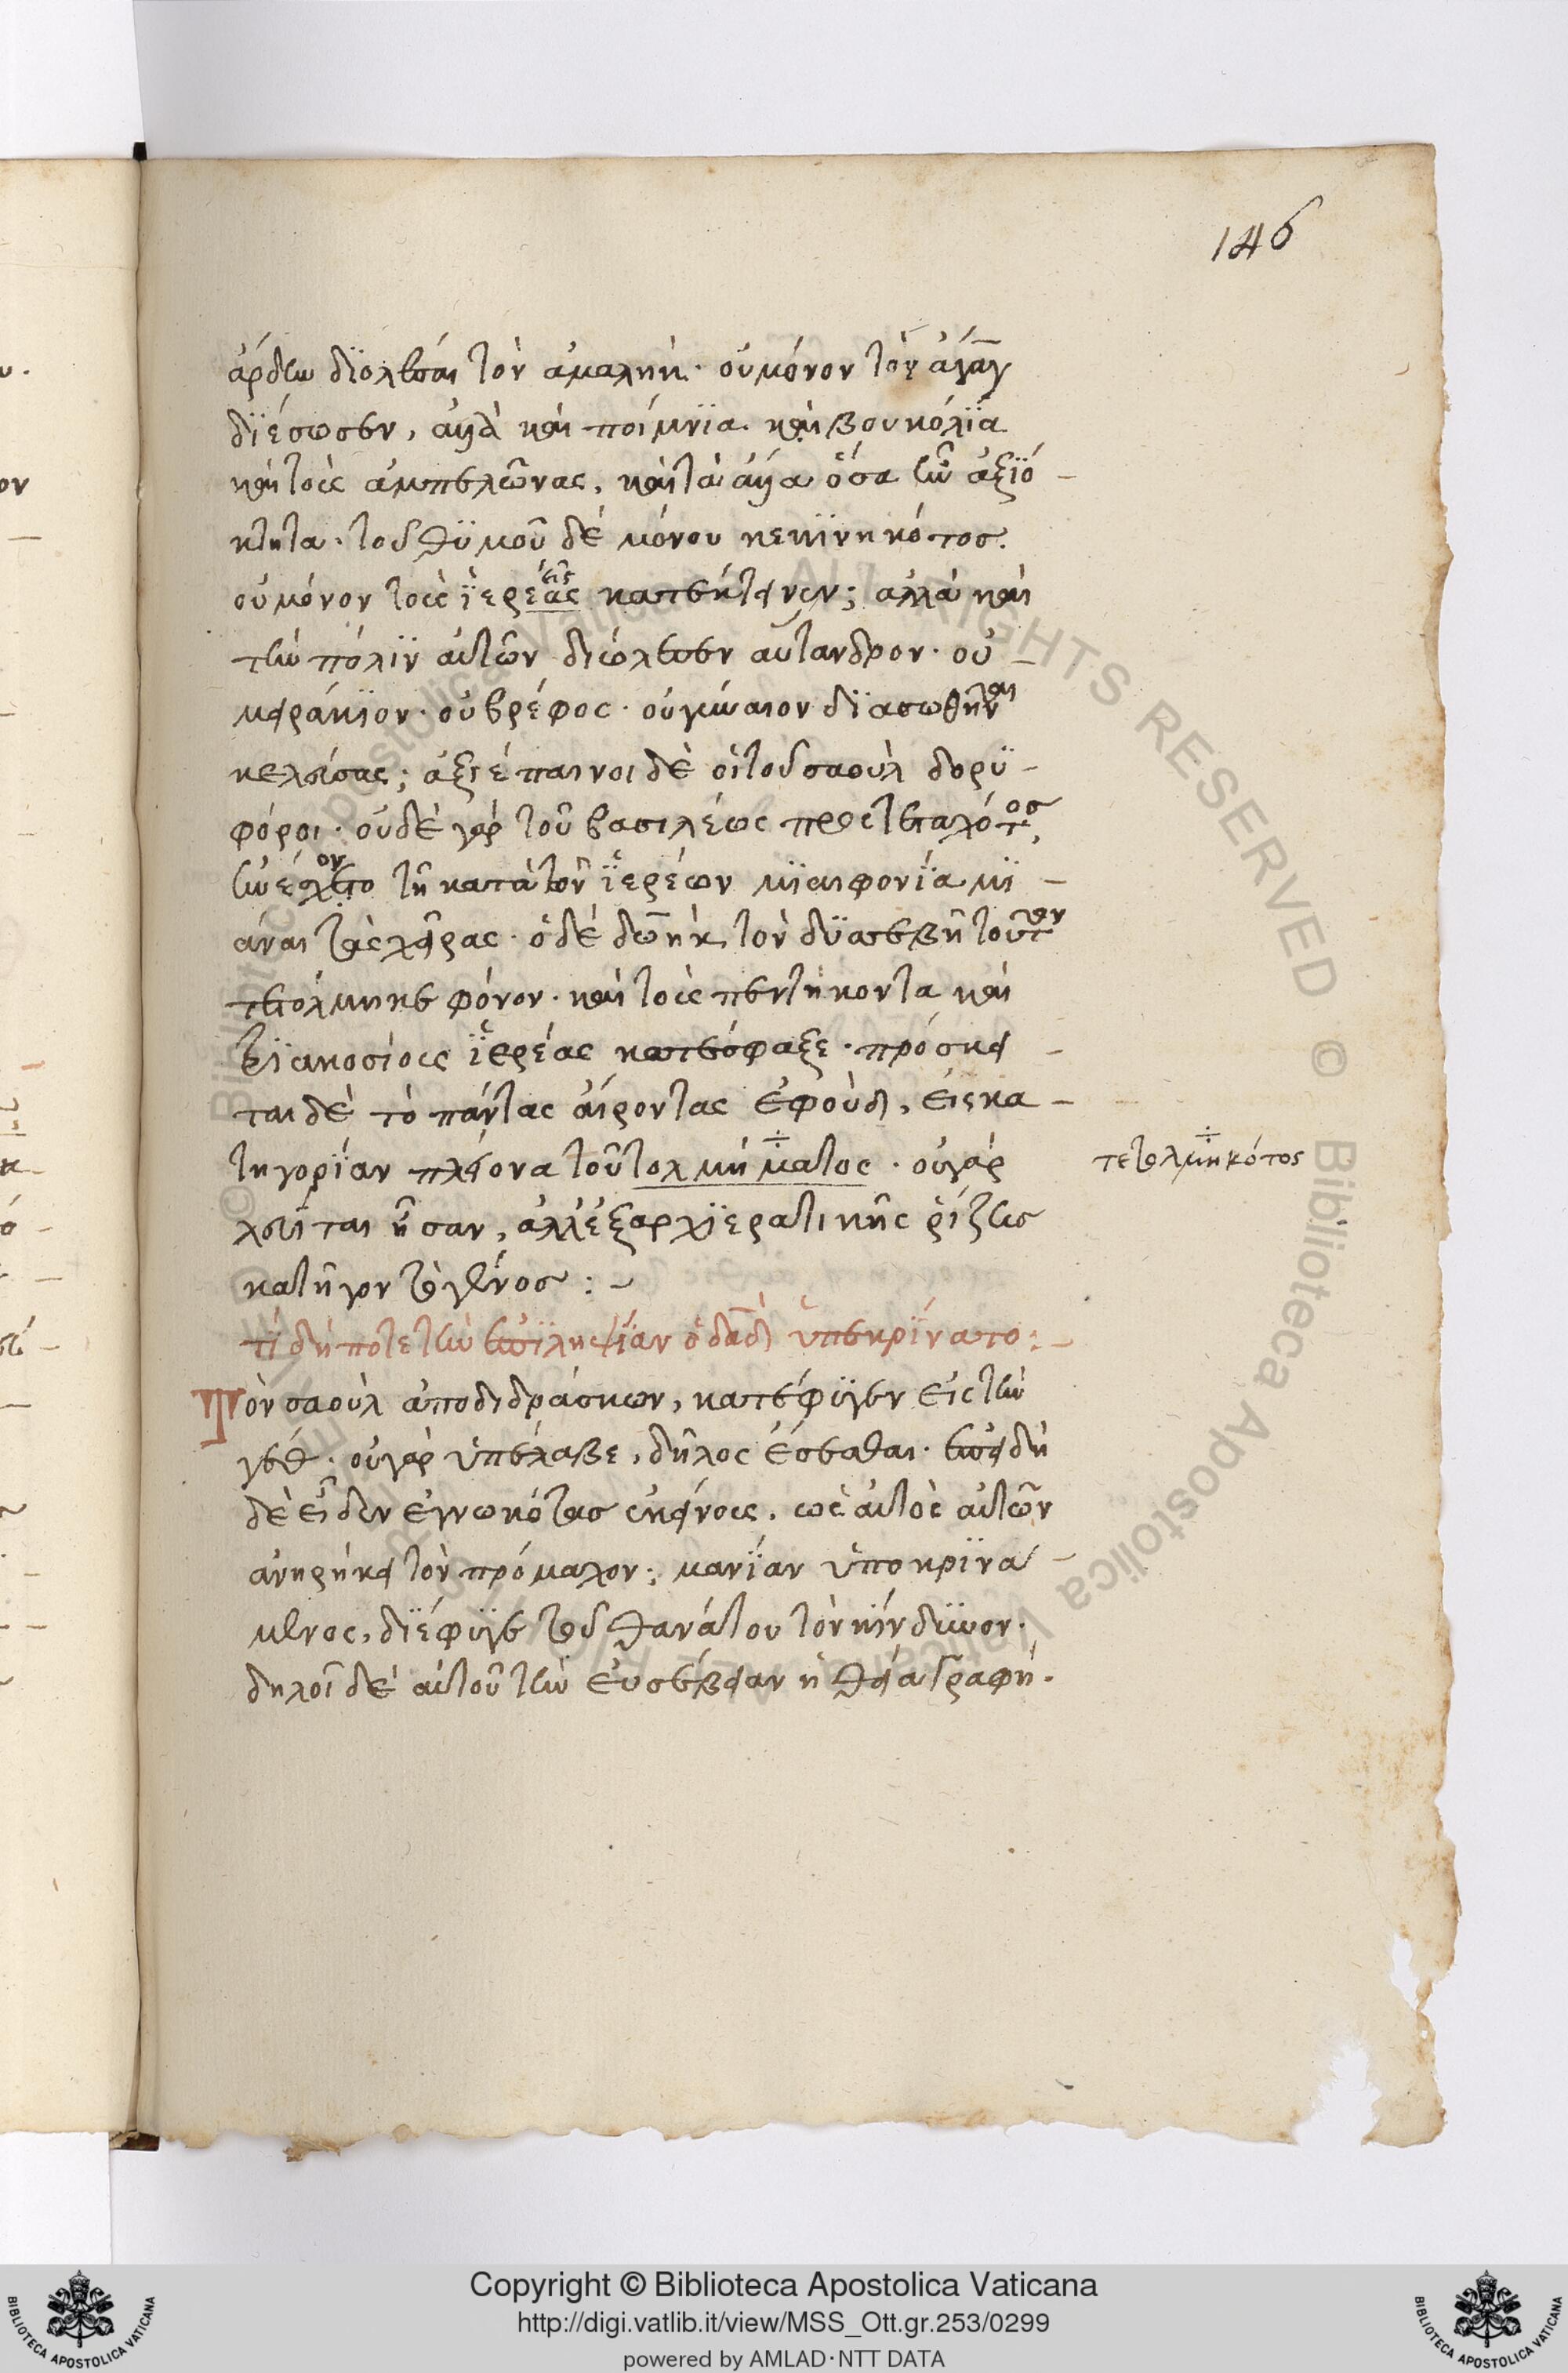 146
ἄρδην διολέσαι τὸν ἀμαλήκ· οὐ μόνον τὸν ἀγὰγ
διέσωσεν, ἀλλὰ καὶ ποίμνια καὶ βουκόλια
καὶ τοὺς ἀμπελῶνας, καὶ τὰ ἄλλα ὅσα ἦν ἀξιό-
κτητα· τοῦ θυμοῦ δὲ μόνου κεκινηκότος·
οὐ μόνον τοὺς ἱερέας εῖς κατέκτεινεν; ἀλλὰ καὶ
τὴν πόλιν αὐτῶν διώλεσεν αὔτανδρον· οὐ-
μειράκιον· οὐ βρέφος· οὐ γύναιον διασωθῆναι
κελεύσας; ἀξιέπαινοι δὲ οἱ τοῦ σαοὺλ δορυ-
φόροι· οὐδὲ γὰρ τοῦ βασιλέως προστεταχότος,
ἠνέσχοντο τῇ κατὰ τῶν ἱερέων μιαιφονία μι-
άναι τὰς χεῖρας· ὁ δὲ δωὴκ τὸν δυσσεβῆ τοῦτον
τετόλμηκε φόνον· καὶ τοὺς πεντήκοντα καὶ
τριακοσίους ἱερέας κατέσφαξε· πρόσκει-
ται δὲ τὸ πάντας αἴροντας ἐφοὺδ, εἰς κα-
τηγορίαν πλείονα τοῦ τολμήματος· οὐ γὰρ
τετολμηκότος
λευῖται ἦσαν, ἀλλ' ἐξ ἀρχιερατικῆς ῥίζης
κατῆγον τὸ γένος :-
τί δήποτε τὴν ἐπίληψίαν ὁ δαδ ὑπεκρίνατο:-
Τὸν σαοὺλ ἀποδιδράσκων, κατέφυγεν εἰς τὴν
γέθ· οὐ γὰρ ὑπέλαβε, δῆλος ἔσεσθαι· ἐπειδὴ
δὲ εἶδεν ἐγνωκότας ἐκείνους, ὡς αὐτὸς αὐτῶν
ἀνηρήκει τὸν πρόμαχον; μανίαν ὑποκρινά-
μενος, διέφυγε τοῦ θανάτου τὸν κίνδυνον·
δηλοῖ δὲ αὐτοῦ τὴν εὐσέβειαν ἡ θεία γραφή·
Copyright © Biblioteca Apostolica Vaticana
http://digi.vatlib.it/view/MSS_Ott.gr.253/0299
powered by AMLAD·NTT DATA